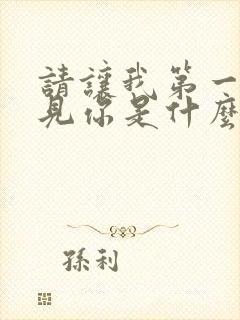 請讓我第一
見你是什麼
孫利